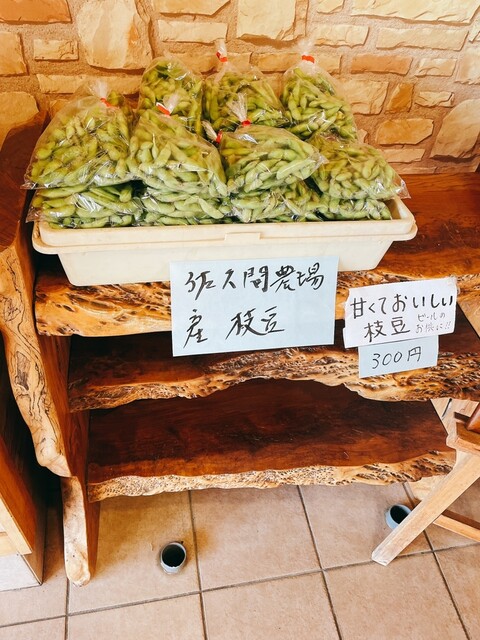 佐久間農場
産 枝豆
甘くておいしい
枝豆
ビールの
お供に!!
300円